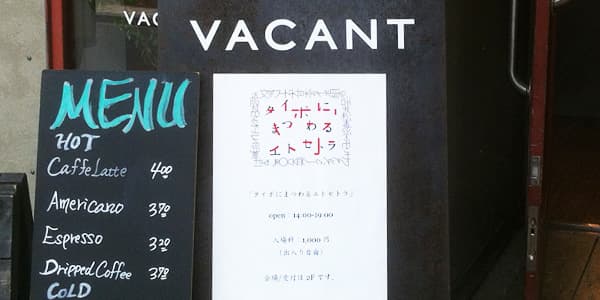 VAC
VACANT
MENU
HOT
Caffe Latte 400
Americano 370
Espresso 320
Dripped Coffee 370
COLD
タイポに
まつわる
エトセトラ
「タイポにまつわるエトセトラ」
open：14:00-19:00
入場料：1,000円
（出入り自由）
会場/受付は2Fです。